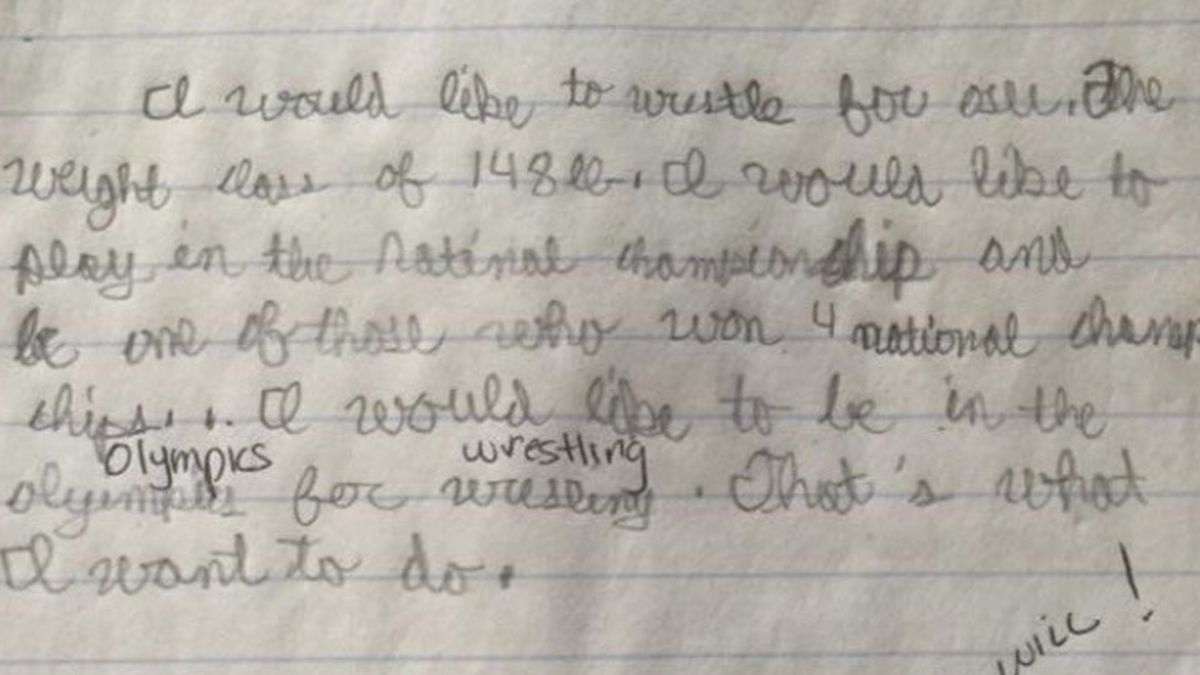 I would like to wrestle for osu. The
weight class of 148lb. I would like to
play in the national championship and
be one of those who won 4 national champ
ships... I would like to be in the
Olympics wrestling
olympics for wresling. That's what
I want to do.
will!